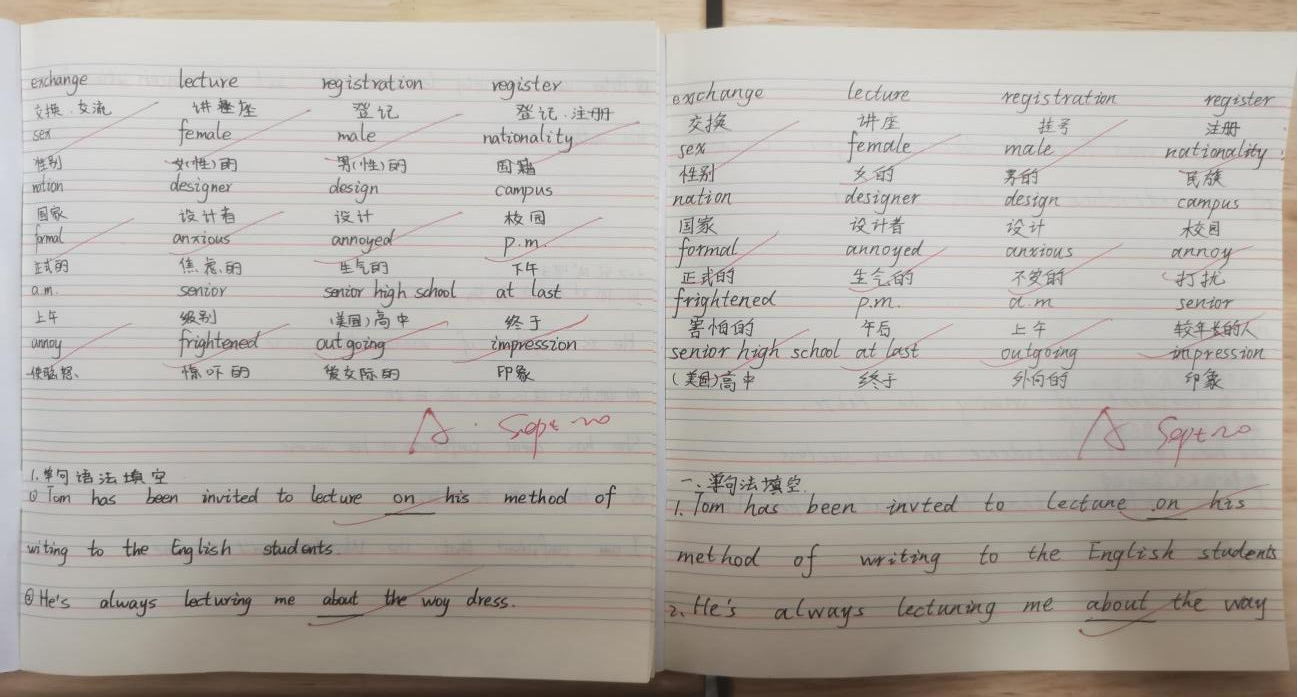 exchange lecture registration register
交换.交流 讲座 登记 登记.注册
sex female male nationality
性别 女(性)的 男(性)的 国籍
nation designer design campus
国家 设计者 设计 校园
formal anxious annoyed p.m.
正式的 焦虑的 生气的 下午
a.m. senior senior high school at last
上午 级别 (美国)高中 终于
annoy frightened outgoing impression
使恼怒 惊吓的 爱交际的 印象
A. Sept 20
1.单句语法填空
① Tom has been invited to lecture on his method of
witing to the English students.
② He's always lecturing me about the way dress.
exchange lecture registration register
交换 讲座 挂号 注册
sex female male nationality
性别 女的 男的 民族
nation designer design campus
国家 设计者 设计 校园
formal annoyed anxious annoy
正式的 生气的 不安的 打扰
frightened p.m. a.m senior
害怕的 午后 上午 较年长的人
senior high school at last outgoing impression
(美国)高中 终于 外向的 印象
A Sept 20
一、单句法填空.
1. Tom has been invted to lecture on his
method of writing to the English students
2. He's always lecturing me about the way